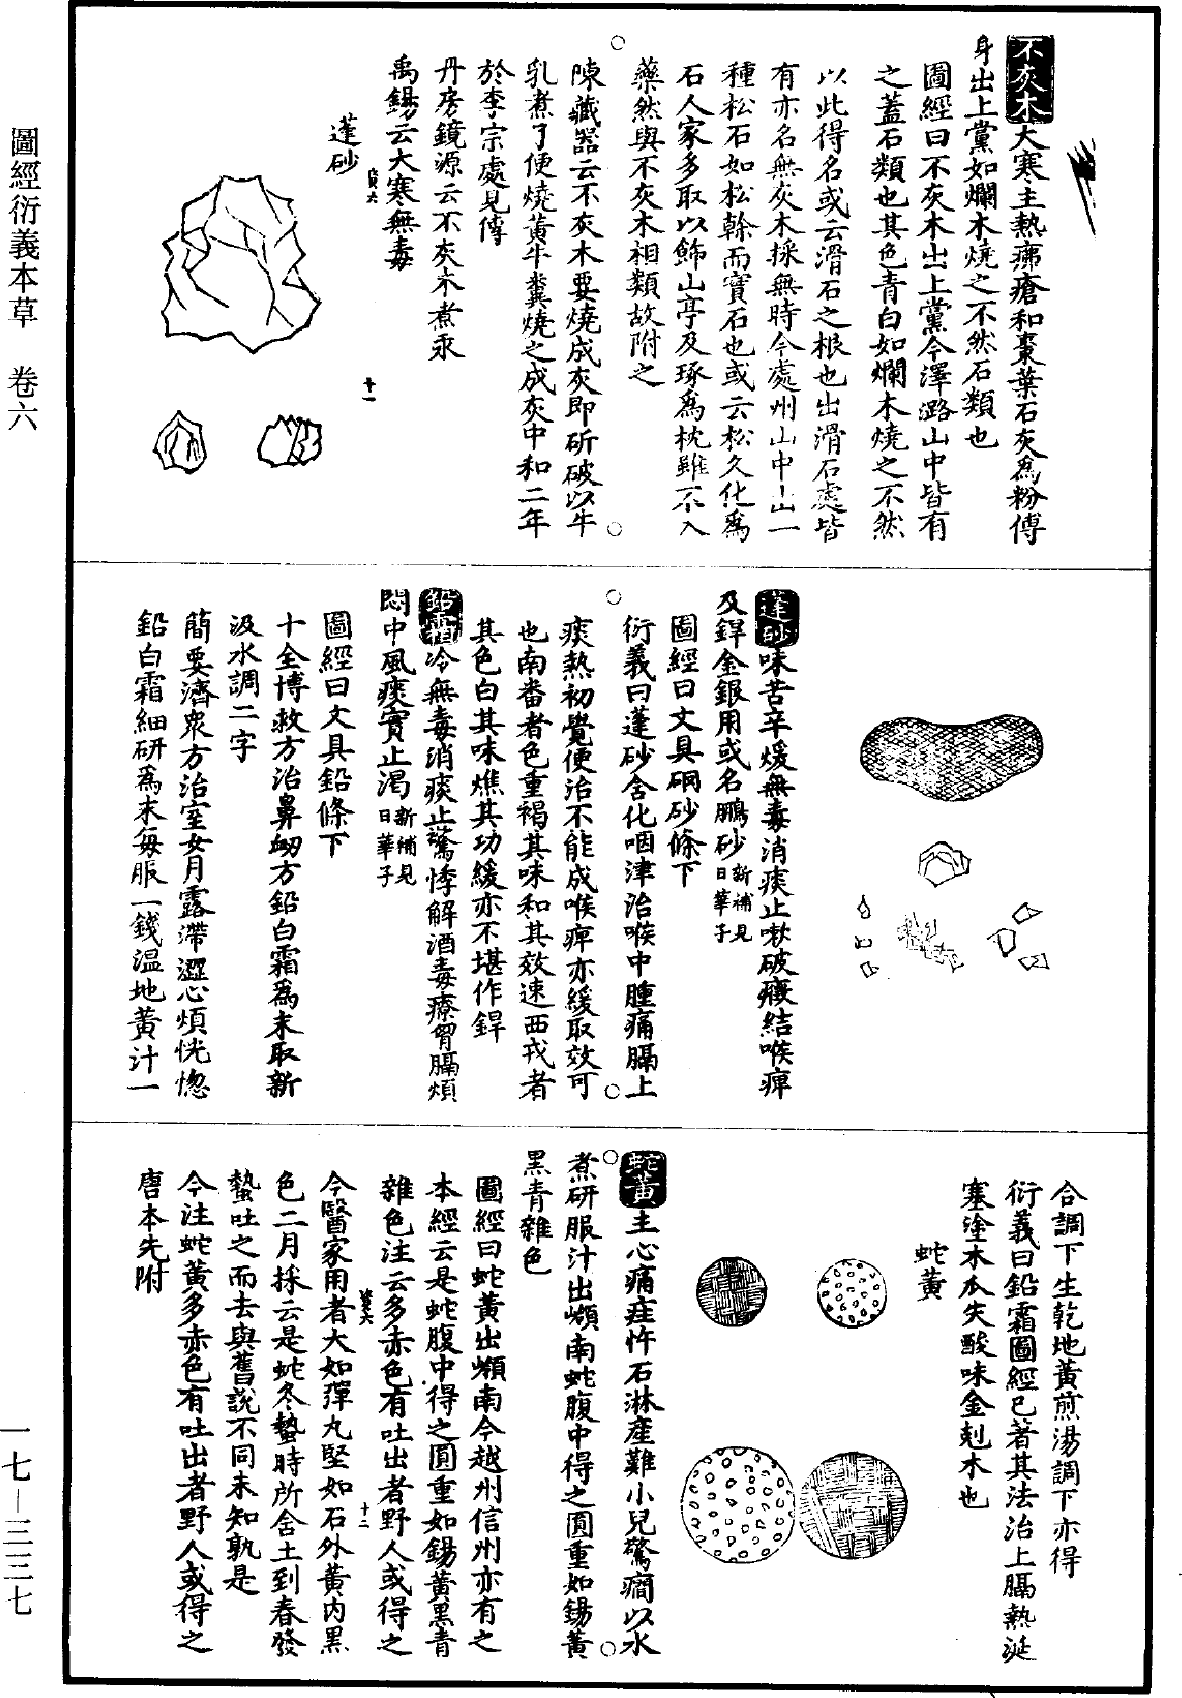 圖經衍義本草　卷六
不灰木大寒主熱疿瘡和棗葉石灰爲粉傅
身出上黨如爛木燒之不然石類也
圖經曰不灰木出上黨今澤潞山中皆有
之蓋石類也其色青白如爛木燒之不然
以此得名或云滑石之根也出滑石處皆
有亦名無灰木採無時今處州山中出一
種松石如松幹而實石也或云松久化爲
石人家多取以飾山亭及琢爲枕雖不入
藥然與不灰木相類故附之
陳藏器云不灰木要燒成灰即斫破以牛
乳煮了便燒黃牛糞燒之成灰中和二年
於李宗處見傳
丹房鏡源云不灰木煮汞
禹錫云大寒無毒
十一
蓬砂
蓬砂味苦辛煖無毒消痰止嗽破癥結喉痺
及銲金銀用或名鵬砂新補見
日華子
圖經曰文具硇砂條下
衍義曰蓬砂含化咽津治喉中腫痛膈上
痰熱初覺便治不能成喉痺亦緩取效可
也南番者色重褐其味和其效速西戎者
其色白其味燋其功緩亦不堪作銲
鉛霜冷無毒消痰止驚悸解酒毒療胷膈煩
悶中風痰實止渴新補見
日華子
圖經曰文具鉛條下
十全博救方治鼻衄方鉛白霜爲末取新
汲水調二字
簡要濟衆方治室女月露滯澀心煩恍惚
鉛白霜細研爲末每服一錢溫地黃汁一
合調下生乾地黃煎湯調下亦得
衍義曰鉛霜圖經已著其法治上膈熱涎
塞塗木瓜失酸味金剋木也
蛇黃
蛇黃主心痛疰忤石淋產難小兒驚癎以水
煮研服汁出嶺南蛇腹中得之圓重如錫黃
黑青雜色
圖經曰蛇黃出嶺南今越州信州亦有之
本經云是蛇腹中得之圓重如錫黃黑青
雜色注云多赤色有吐出者野人或得之
十二
今醫家用者大如彈丸堅如石外黃內黑
色二月採云是蛇冬蟄時所含土到春發
蟄吐之而去與舊說不同未知孰是
今注蛇黃多赤色有吐出者野人或得之
唐本先附
一七—三三七